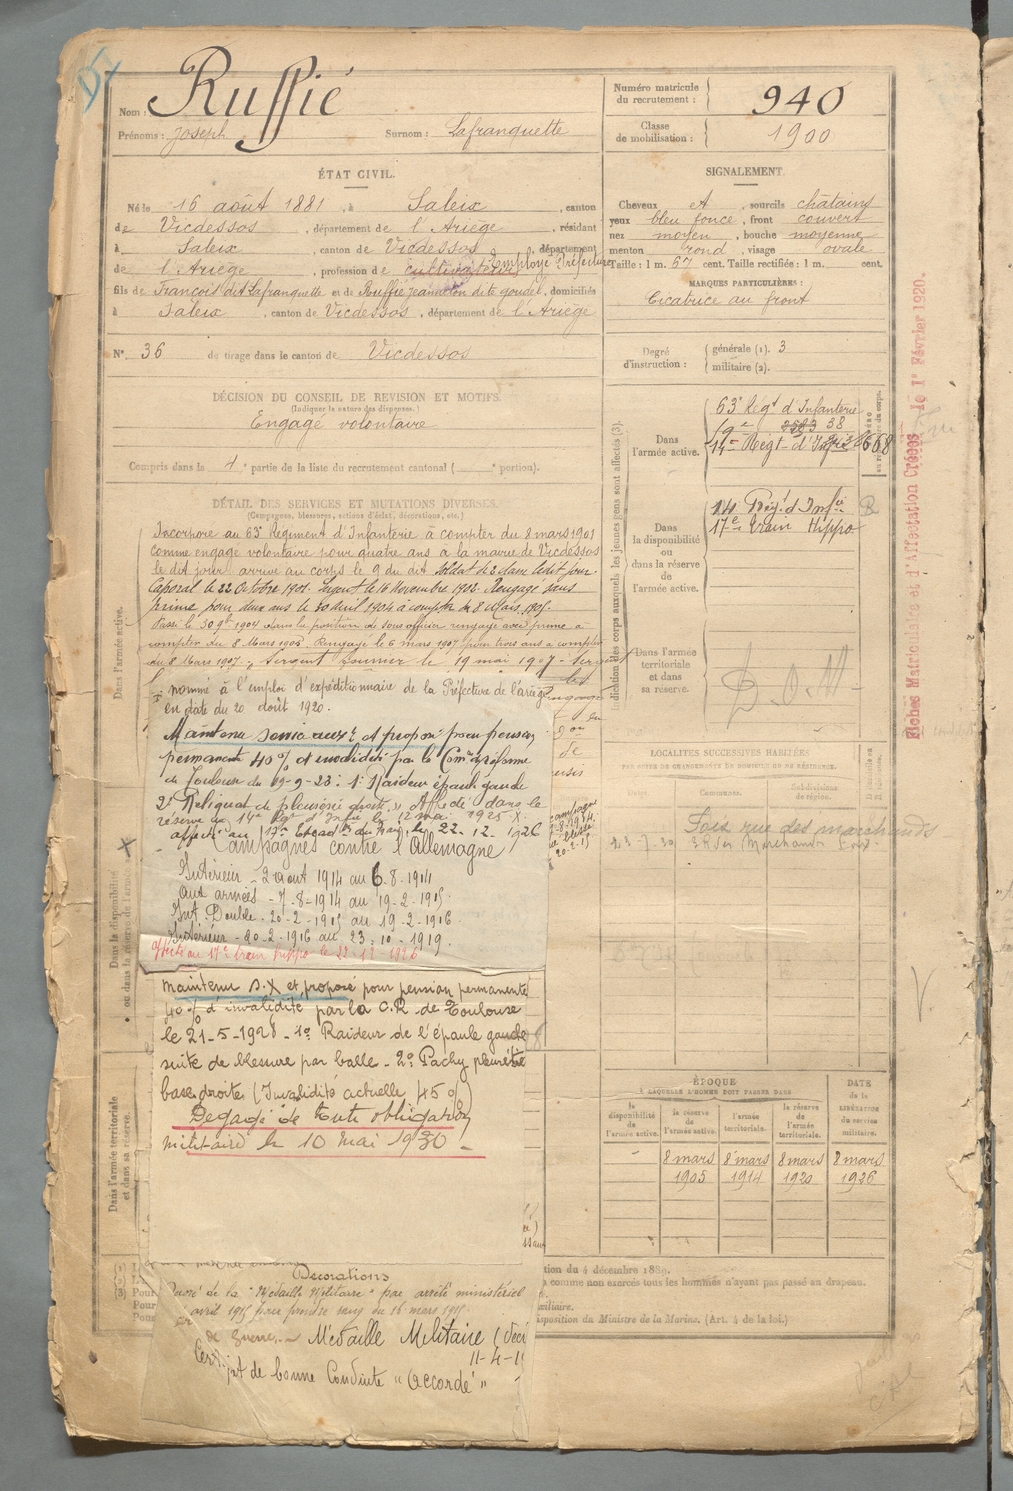 Nom : Ruffié
Prénoms : Joseph Surnom : Lafranquette
Numéro matricule du recrutement : 940
Classe de mobilisation : 1900
ÉTAT CIVIL.
Né le 16 août 1881, à Saleix, canton
de Vicdessos, département de l'Ariège, résidant
à Saleix, canton de Vicdessos, département
de l'Ariège, profession de cultivateur Employé Préfecture
fils de François dit Lafranquette et de Ruffié Jeanneton dite goudet, domiciliés
à Saleix, canton de Vicdessos, département de l'Ariège
N° 36 de tirage dans le canton de Vicdessos
SIGNALEMENT.
Cheveux et, sourcils châtains
yeux bleu foncé, front couvert
nez moyen, bouche moyenne
menton rond, visage ovale
Taille : 1 m. 67 cent. Taille rectifiée : 1 m. cent.
MARQUES PARTICULIÈRES :
Cicatrice au front
Degré d'instruction : générale (1). 3
militaire (2).
DÉCISION DU CONSEIL DE REVISION ET MOTIFS.
(Indiquer la nature des dispenses.)
Engagé volontaire
Compris dans la 1e partie de la liste du recrutement cantonal ( e portion).
DÉTAIL DES SERVICES ET MUTATIONS DIVERSES.
(Campagnes, blessures, actions d'éclat, décorations, etc.)
Incorporé au 63e Régiment d'Infanterie à compter du 8 mars 1901
comme engagé volontaire pour quatre ans à la mairie de Vicdessos
le dit jour arrivé au corps le 9 du dit Soldat de 2e classe ledit jour.
Caporal le 22 Octobre 1901. Sergent le 16 Novembre 1902. Rengagé sans
prime pour deux ans le 30 avril 1904 à compter du 8 Mars 1905.
Passé le 30 9bre 1904 dans la position de sous officier rengagé avec prime à
compter du 8 Mars 1905. Rengagé le 6 mars 1907 pour trois ans à compter
du 8 Mars 1907. Sergent fourrier le 19 mai 1907
nommé à l'emploi d'expéditionnaire de la Préfecture de l'ariège
en date du 20 août 1920.
Maintenu service auxre et proposé pour pension
permanente 40% d'invalidité par la Comon de réforme
de Toulouse du 19-9-23: 1° Raideur épaule gauche
2° Reliquat de pleurésie droite. Affecté dans la
réserve au 14e Régt d'Infie le 12 mai 1925
affecté au 17e Escadon du Train le 22-12-1926
Campagnes contre l'Allemagne
Intérieur - 2 aout 1914 au 6-8-1914
aux armées - 7-8-1914 au 19-2-1915
Int. Double - 20-2-1915 au 19-2-1916
Intérieur - 20-2-1916 au 23-10-1919.
Affecté au 17e train hippo le 22-12-1926
maintenu S.X et proposé pour pension permanente
40% d'invalidité par la C.R. de Toulouse
le 21-5-1928 - 1° Raideur de l'épaule gauche
suite de blessure par balle - 2° Pachy pleurite
base droite (Invalidité actuelle 45%)
Dégagé de toute obligation
militaire le 10 mai 1930
Décorations
Décoré de la "Médaille Militaire" par arrêté ministériel
avril 1915 pour prendre rang du 16 mars 1915
de Guerre. Médaille Militaire (
11-4-1
Certificat de bonne Conduite "Accordé"
Dans l'armée active.
Dans la disponibilité ou dans la réserve de l'armée active.
Dans l'armée territoriale et dans sa réserve.
Indication des corps auxquels les jeunes gens sont affectés (3).
Dans l'armée active.
63e Régt d'Infanterie
14e Regt d'Infie
Dans la disponibilité ou dans la réserve de l'armée active.
14e Régt d'Infie
17e Train Hippo
Dans l'armée territoriale et dans sa réserve.
D.O.M
LOCALITÉS SUCCESSIVES HABITÉES
PAR SUITE DE CHANGEMENTS DE DOMICILE OU DE RÉSIDENCE.
Dates. Communes. Subdivisions de région.
Foix rue des marchands
23-7-30
ÉPOQUE
À LAQUELLE L'HOMME DOIT PASSER DANS
la disponibilité de l'armée active. la réserve de l'armée active. l'armée territoriale. la réserve de l'armée territoriale. DATE de la LIBÉRATION du service militaire.
- 8 mars 1905 8 mars 1914 8 mars 1920 8 mars 1926
tion du 4 décembre 1889.
comme non exercés tous les hommes n'ayant pas passé au drapeau.
isposition du Ministre de la Marine. (Art. 4 de la loi.)
Fiches Matricules et d'Affectation Créées le 1er Février 1920.